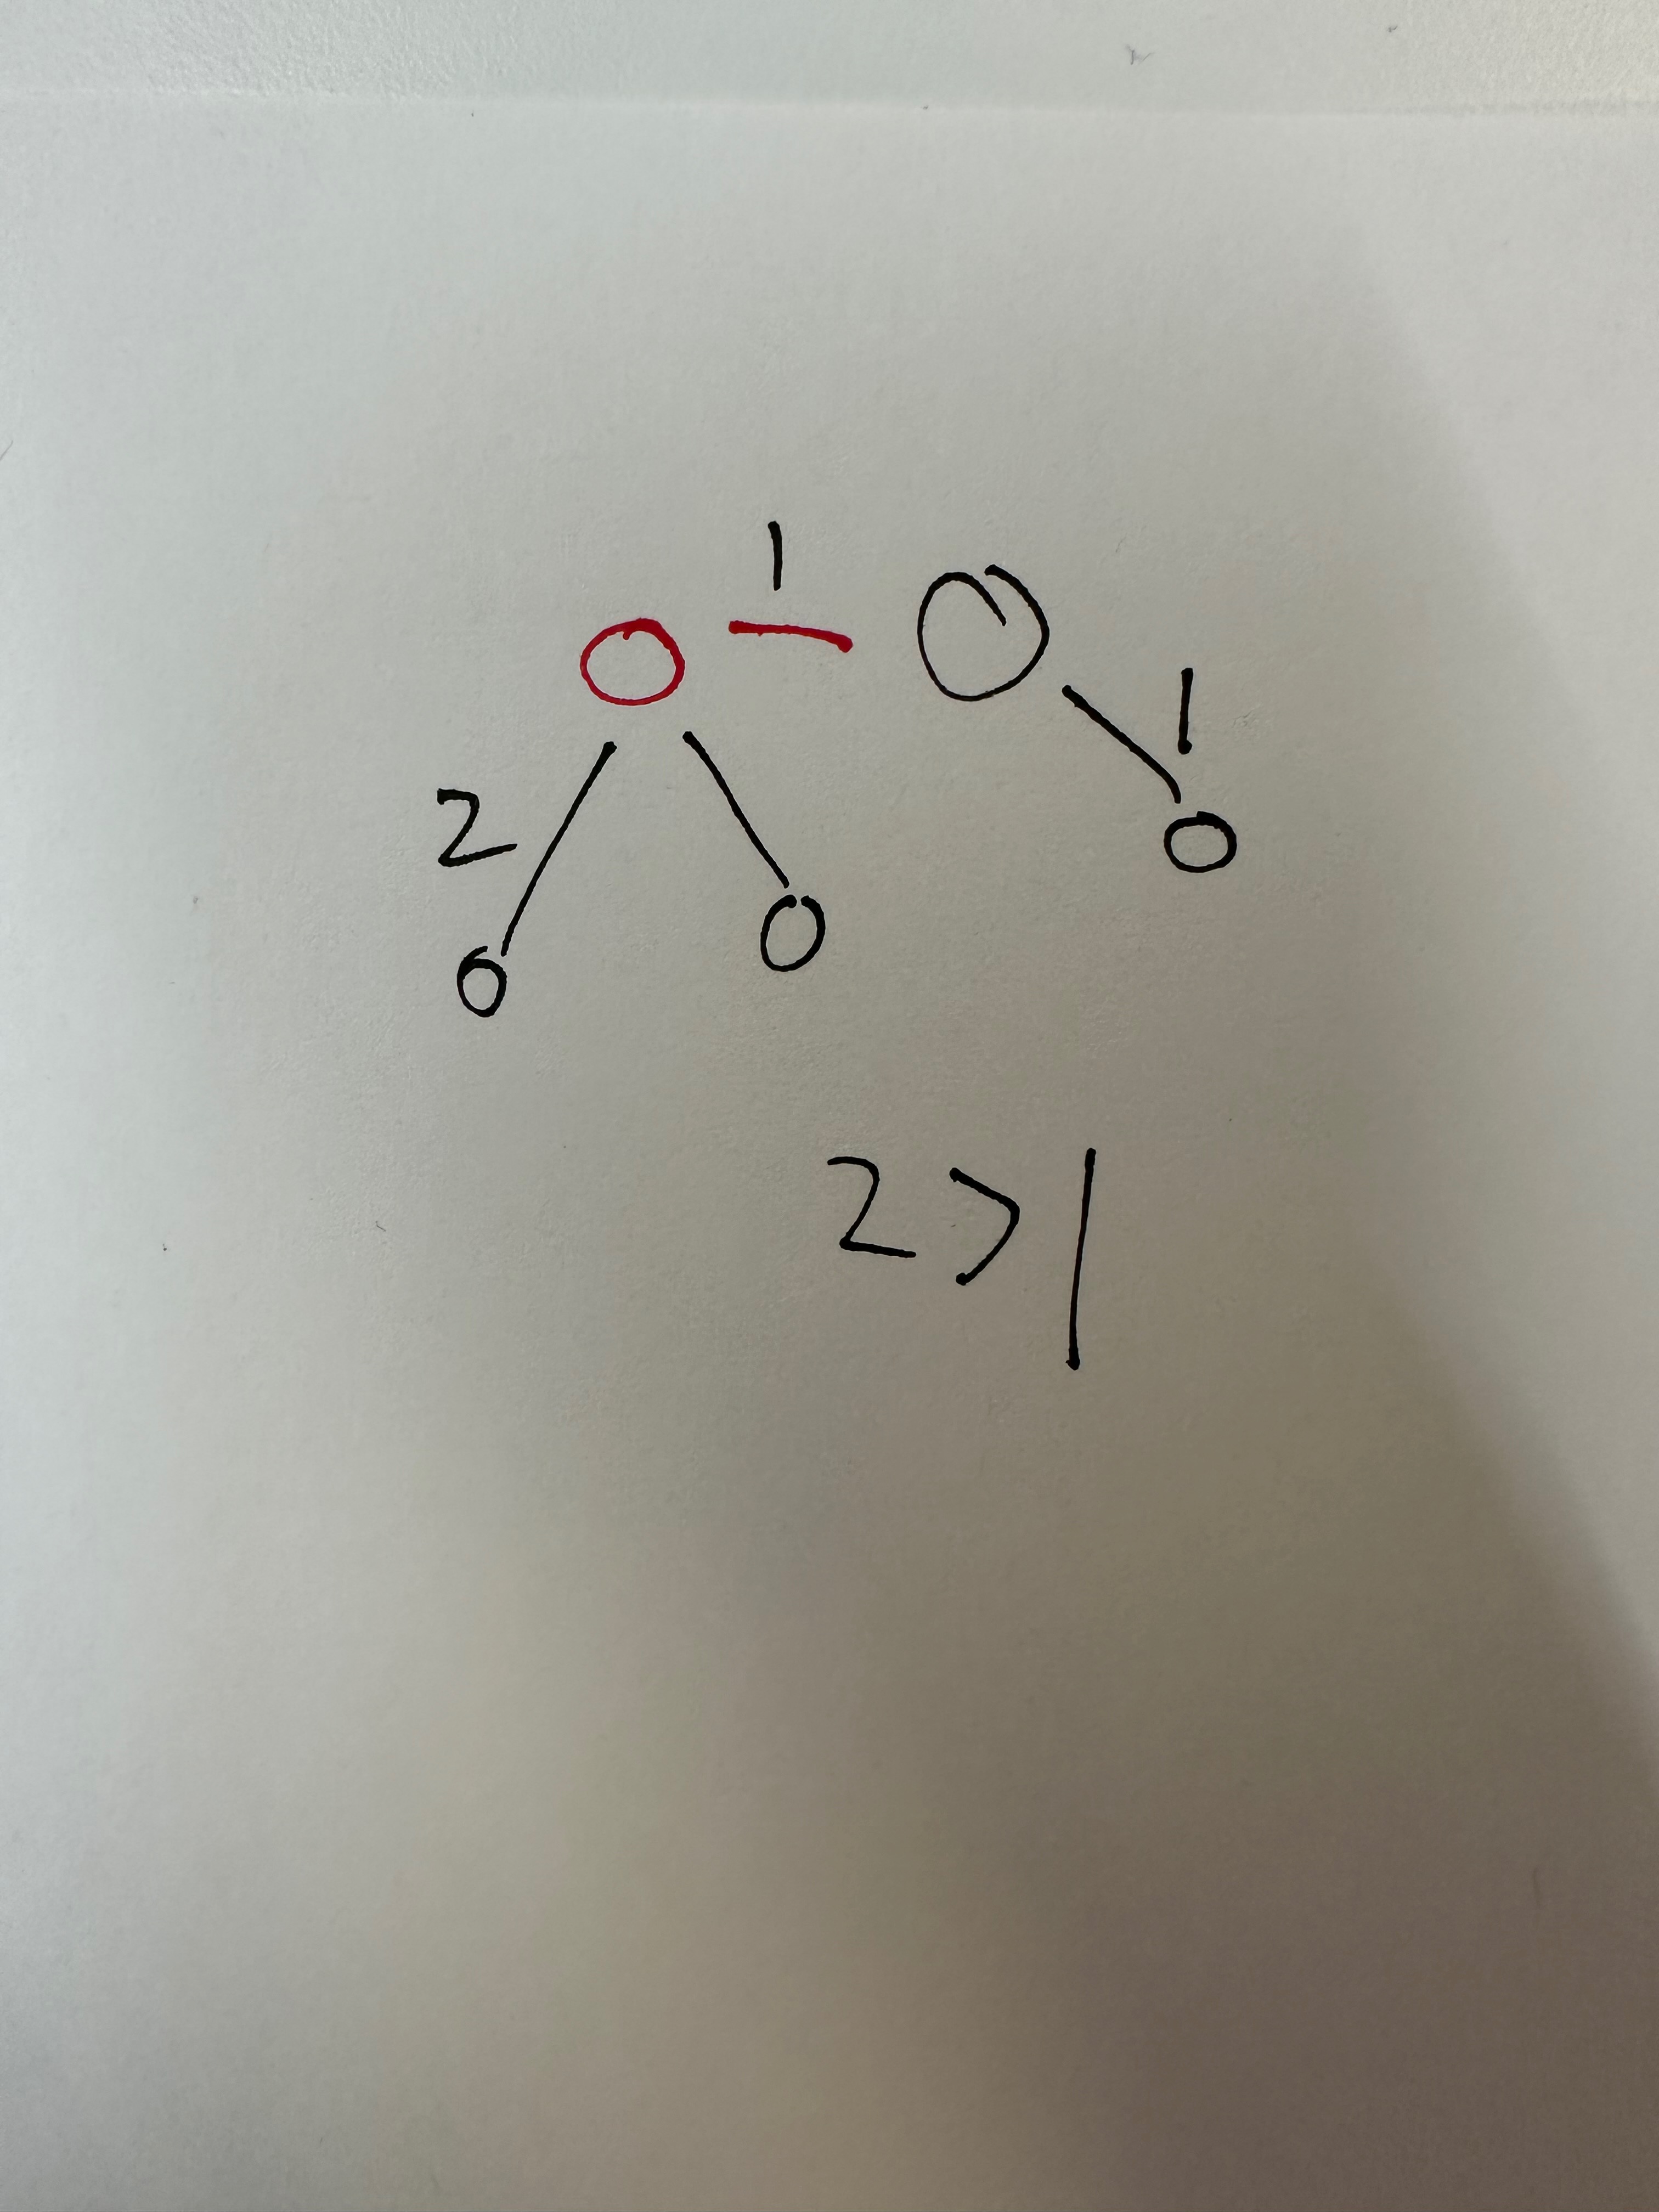 1
1
2
2 > 1